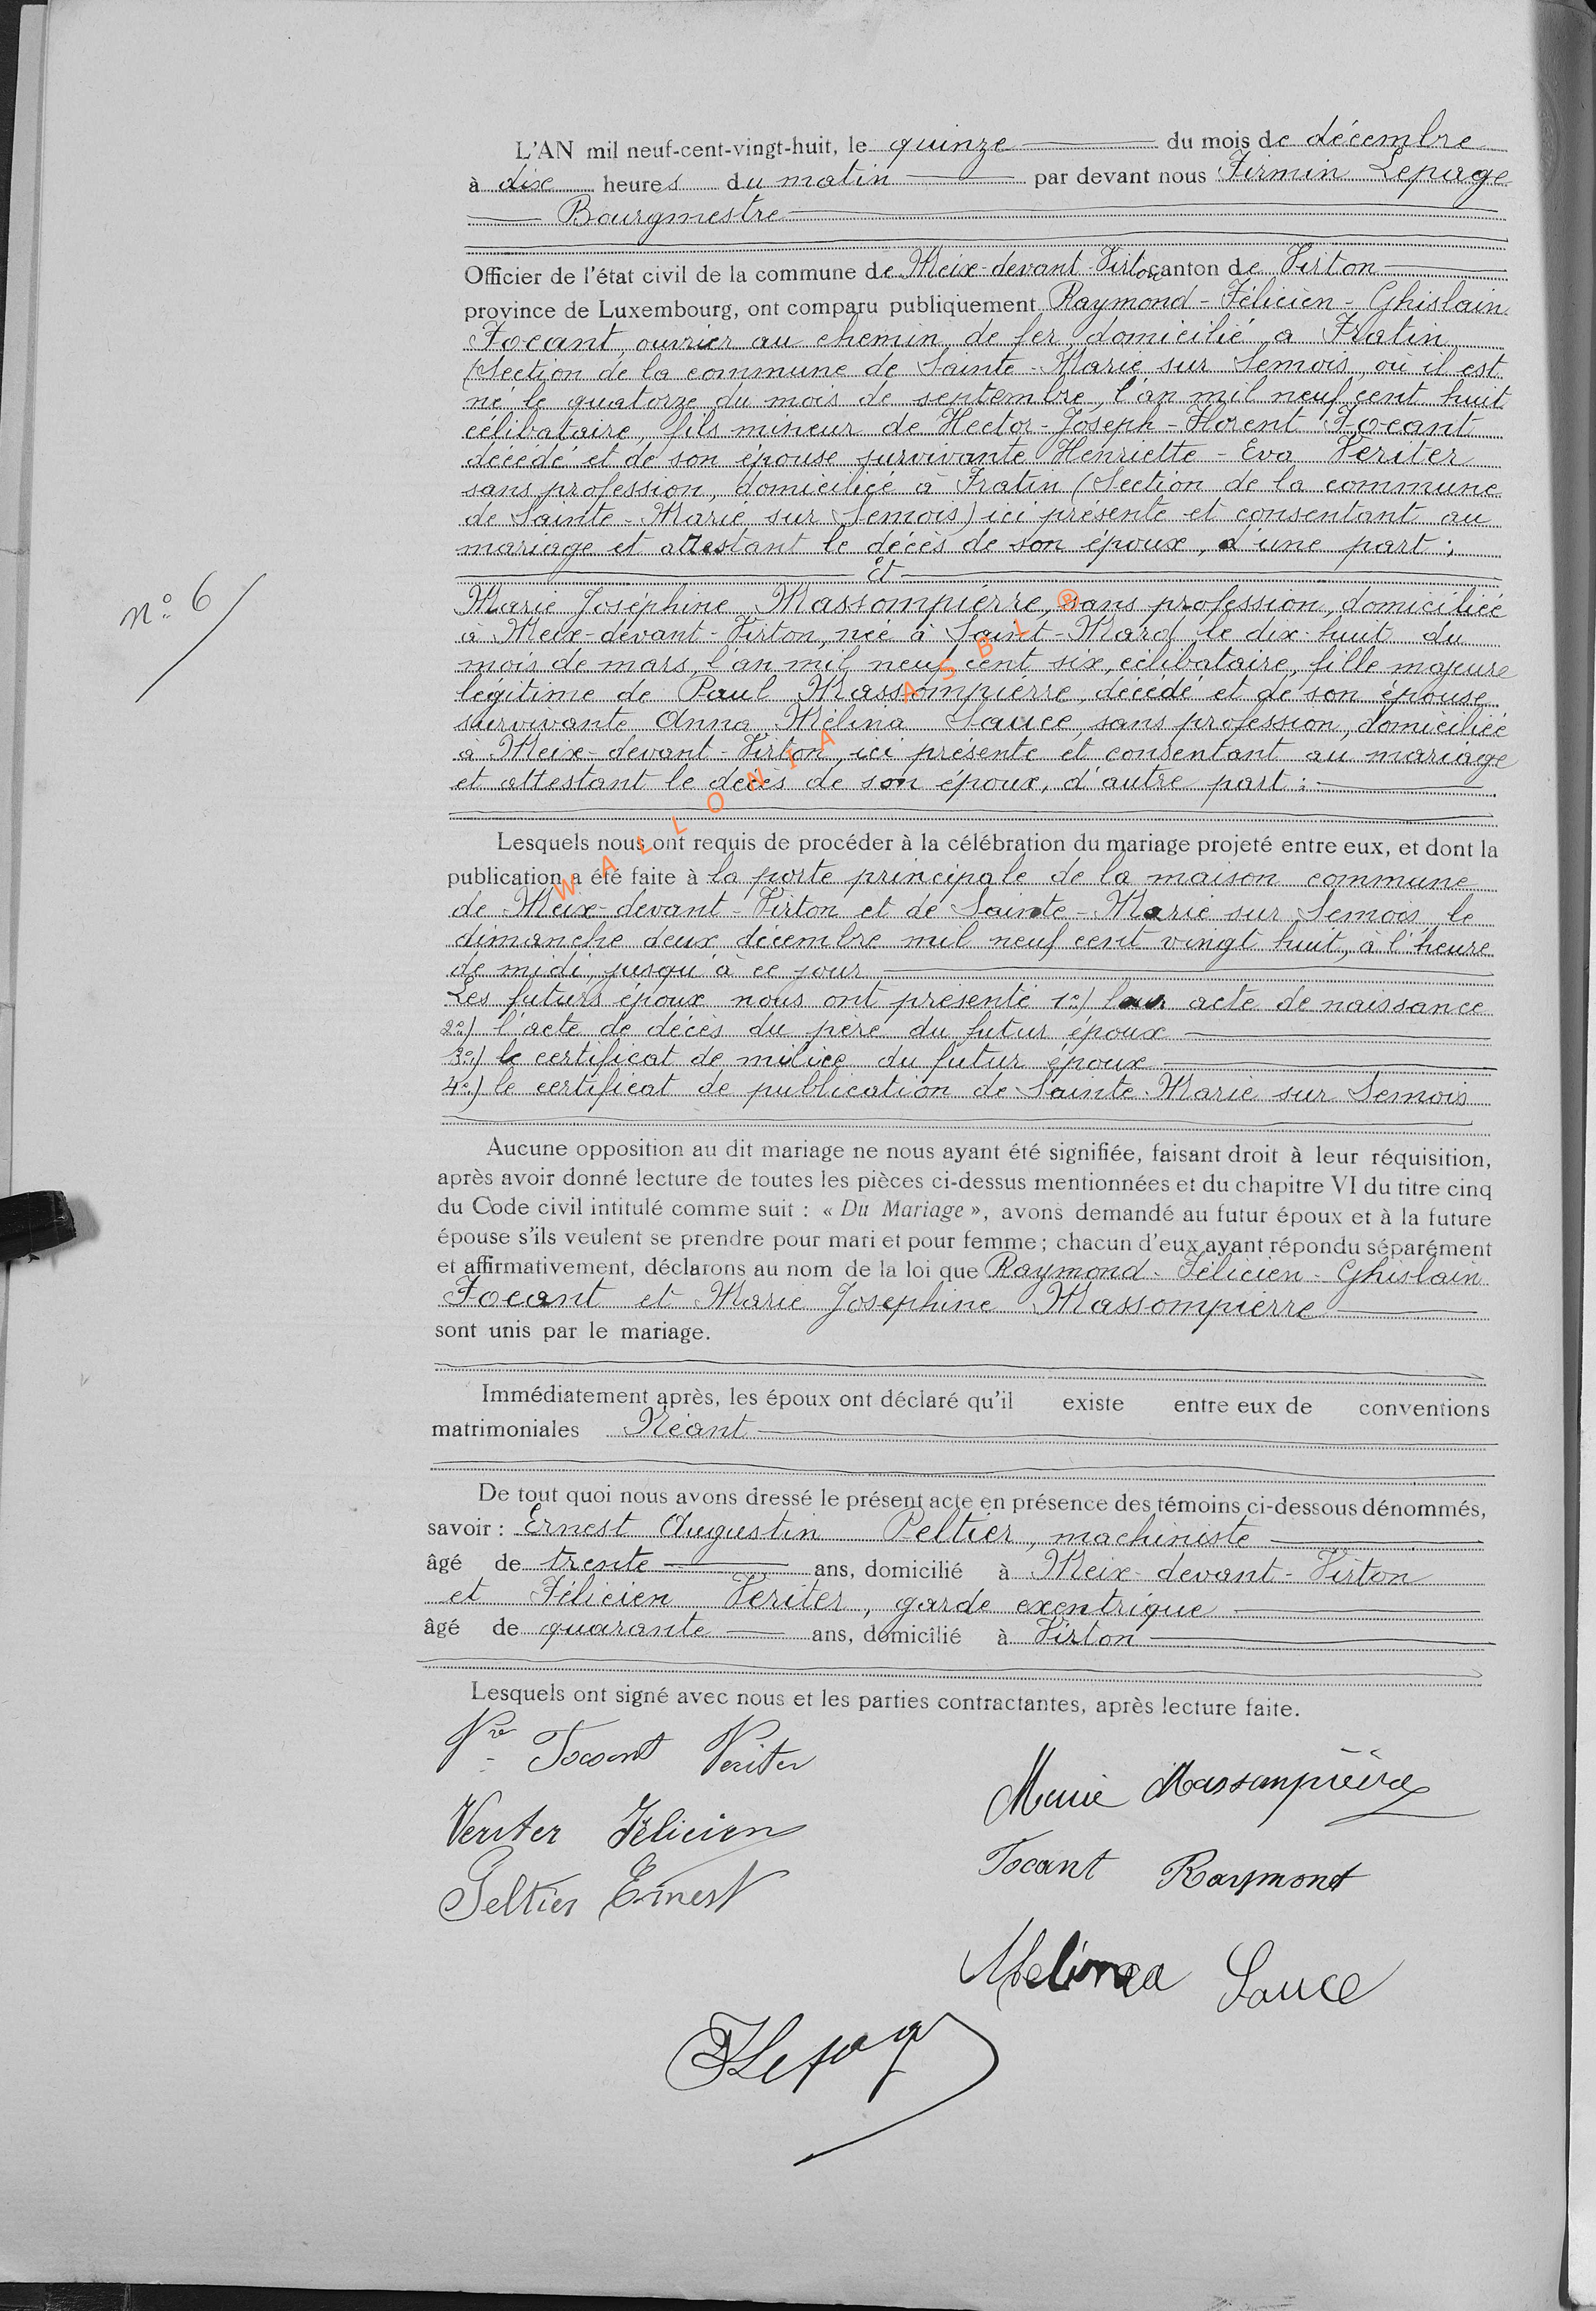 L'AN mil neuf-cent-vingt-huit, le quinze du mois de décembre
à dix heures du matin par devant nous Firmin Lepage
Bourgmestre
Officier de l'état civil de la commune de Meix-devant-Virton canton de Virton
province de Luxembourg, ont comparu publiquement Raymond-Félicien-Ghislain
Focant, ouvrier au chemin de fer, domicilié a Fratin
(Section de la commune de Sainte-Marie sur Semois, où il est
né le quatorze du mois de septembre, l'an mil neuf cent huit
célibataire, fils mineur de Hector-Joseph-Florent Focant
décédé et de son épouse survivante Henriette-Eva Veriter
sans profession, domiciliée à Fratin (Section de la commune
de Sainte-Marie sur Semois) ici présente et consentant au
mariage et attestant le décès de son époux, d'une part;
Et
N° 6
Marie Joséphine Massompierre, sans profession, domiciliée
à Meix-devant-Virton, née à Saint-Mard le dix-huit du
mois de mars, l'an mil neuf cent six, célibataire, fille majeure
légitime de Paul Massompierre, décédé et de son épouse
survivante Anna Mélina Sauce, sans profession, domiciliée
à Meix-devant-Virton, ici présente et consentant au mariage
et attestant le décès de son époux, d'autre part:
WALLONIA ASBL ®
Lesquels nous ont requis de procéder à la célébration du mariage projeté entre eux, et dont la
publication a été faite à la porte principale de la maison commune
de Meix-devant-Virton et de Sainte-Marie sur Semois, le
dimanche deux décembre mil neuf cent vingt huit, à l'heure
de midi, jusqu'à ce jour
Les futurs époux nous ont présenté 1°) leur acte de naissance
2°) l'acte de décès du père du futur époux
3°) le certificat de milice du futur époux
4°) le certificat de publication de Sainte-Marie sur Semois
Aucune opposition au dit mariage ne nous ayant été signifiée, faisant droit à leur réquisition,
après avoir donné lecture de toutes les pièces ci-dessus mentionnées et du chapitre VI du titre cinq
du Code civil intitulé comme suit : « Du Mariage », avons demandé au futur époux et à la future
épouse s'ils veulent se prendre pour mari et pour femme ; chacun d'eux ayant répondu séparément
et affirmativement, déclarons au nom de la loi que Raymond-Félicien-Ghislain
Focant et Marie Josephine Massompierre
sont unis par le mariage.
Immédiatement après, les époux ont déclaré qu'il existe entre eux de conventions
matrimoniales Néant
De tout quoi nous avons dressé le présent acte en présence des témoins ci-dessous dénommés,
savoir : Ernest Augustin Peltier, machiniste
âgé de trente ans, domicilié à Meix-devant-Virton
et Félicien Veriter, garde exentrique
âgé de quarante ans, domicilié à Virton
Lesquels ont signé avec nous et les parties contractantes, après lecture faite.
Vve Focant Veriter
Marie Massompierre
Veriter Félicien
Focant Raymond
Peltier Ernest
Melinaa Sauce
FLepage